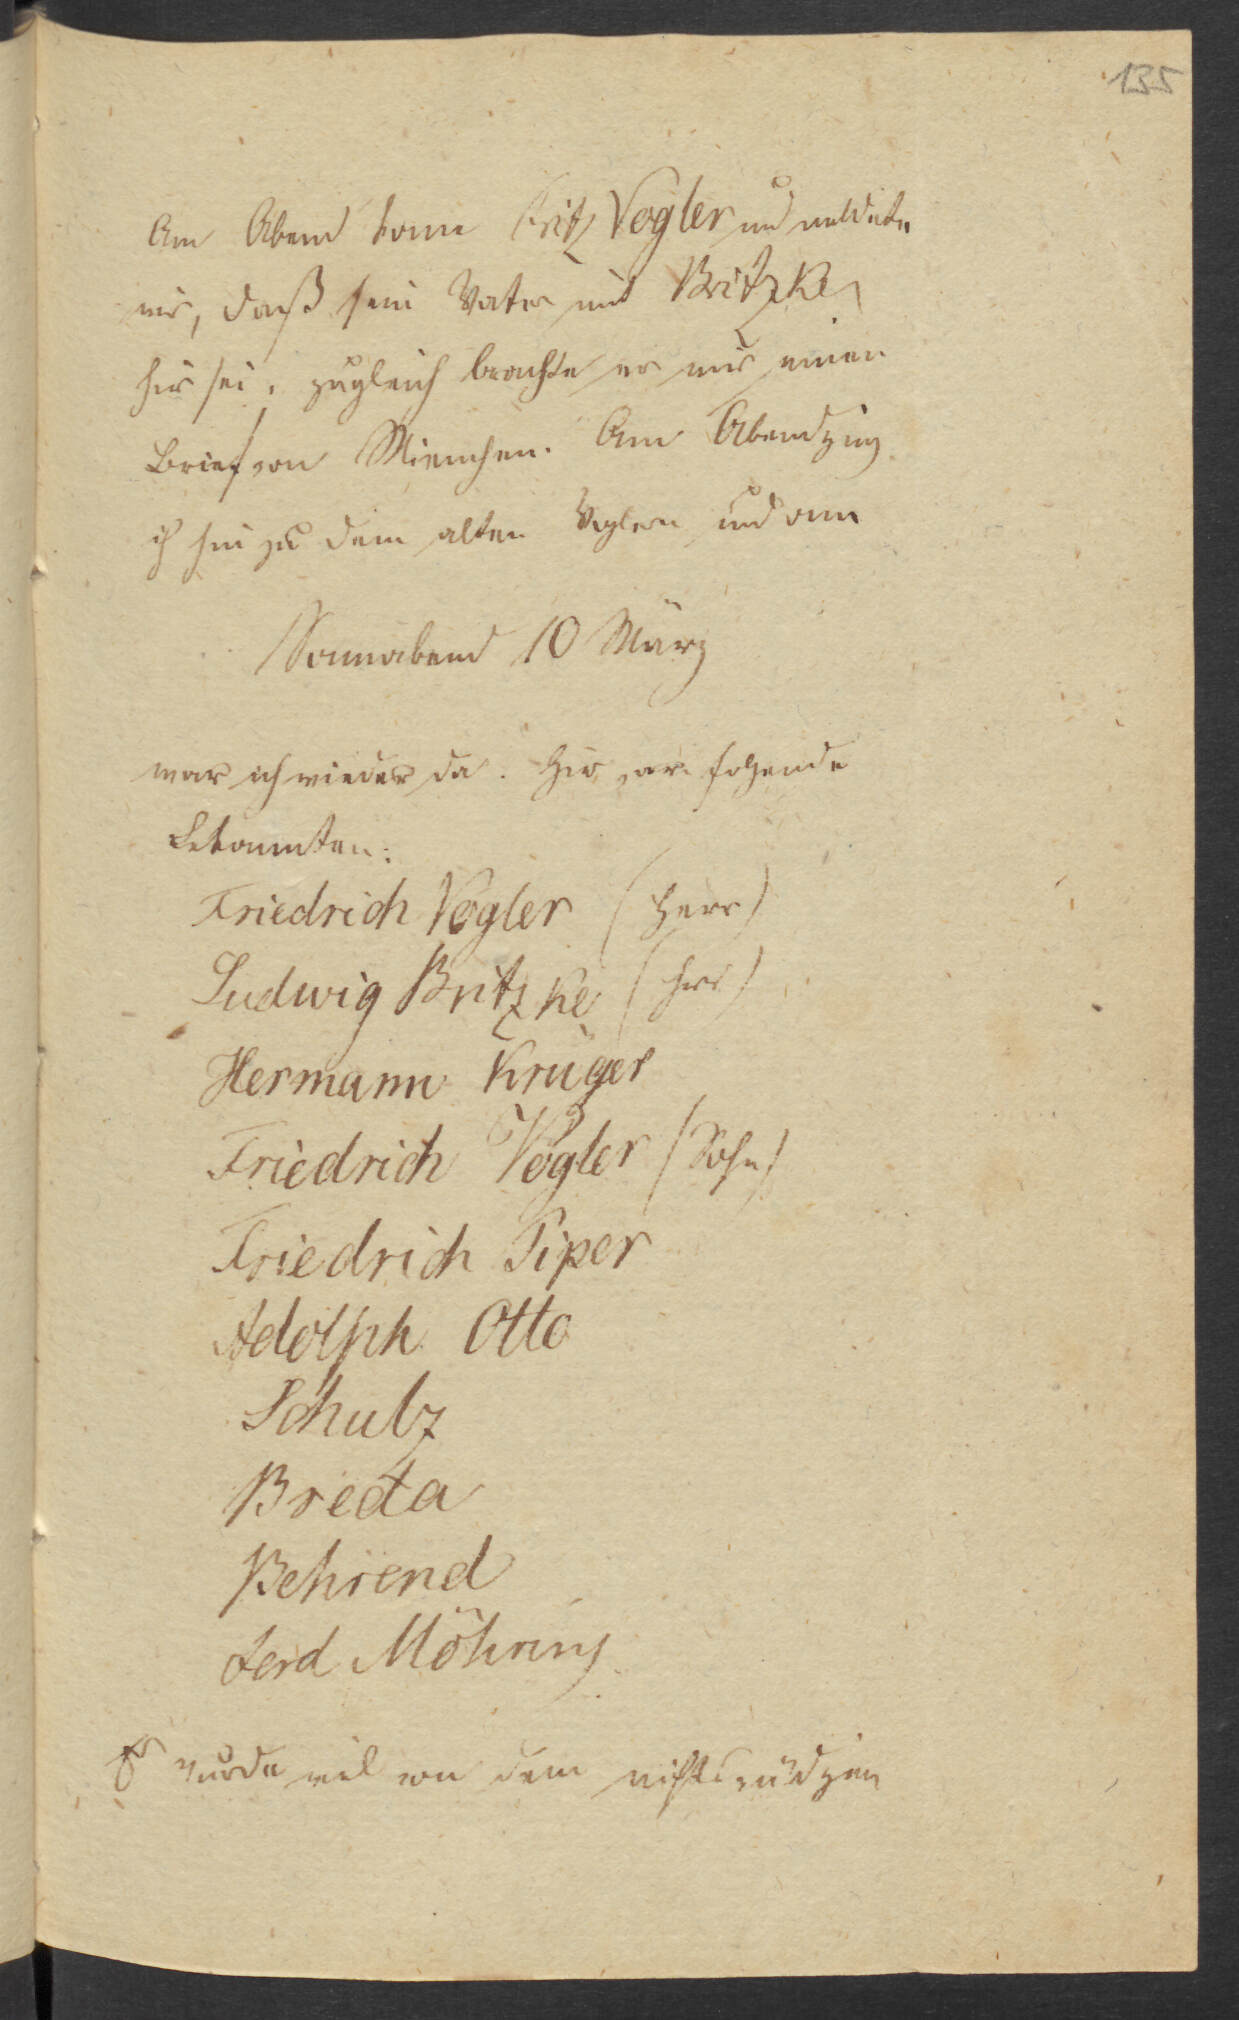 135
Am Abend kam Fritz Vogler und meldete
mir, daß sein Vater mit Britzke
hier sei, zugleich brachte er mir einen
Brief von Mienchen. Am Abend ging
ich hin zu dem alten Voglern und am
Sonnabend 10 März
war ich wieder da. Hier war folgende
Bekannten:
Friedrich Vogler (Herr)
Ludwig Britzke (Herr)
Hermann Krüger
Friedrich Vogler (Sohn)
Friedrich Piper
Adolph Otto
Schulz
Breda
Behrend
Ferd Möhring
Es wurde viel von dem